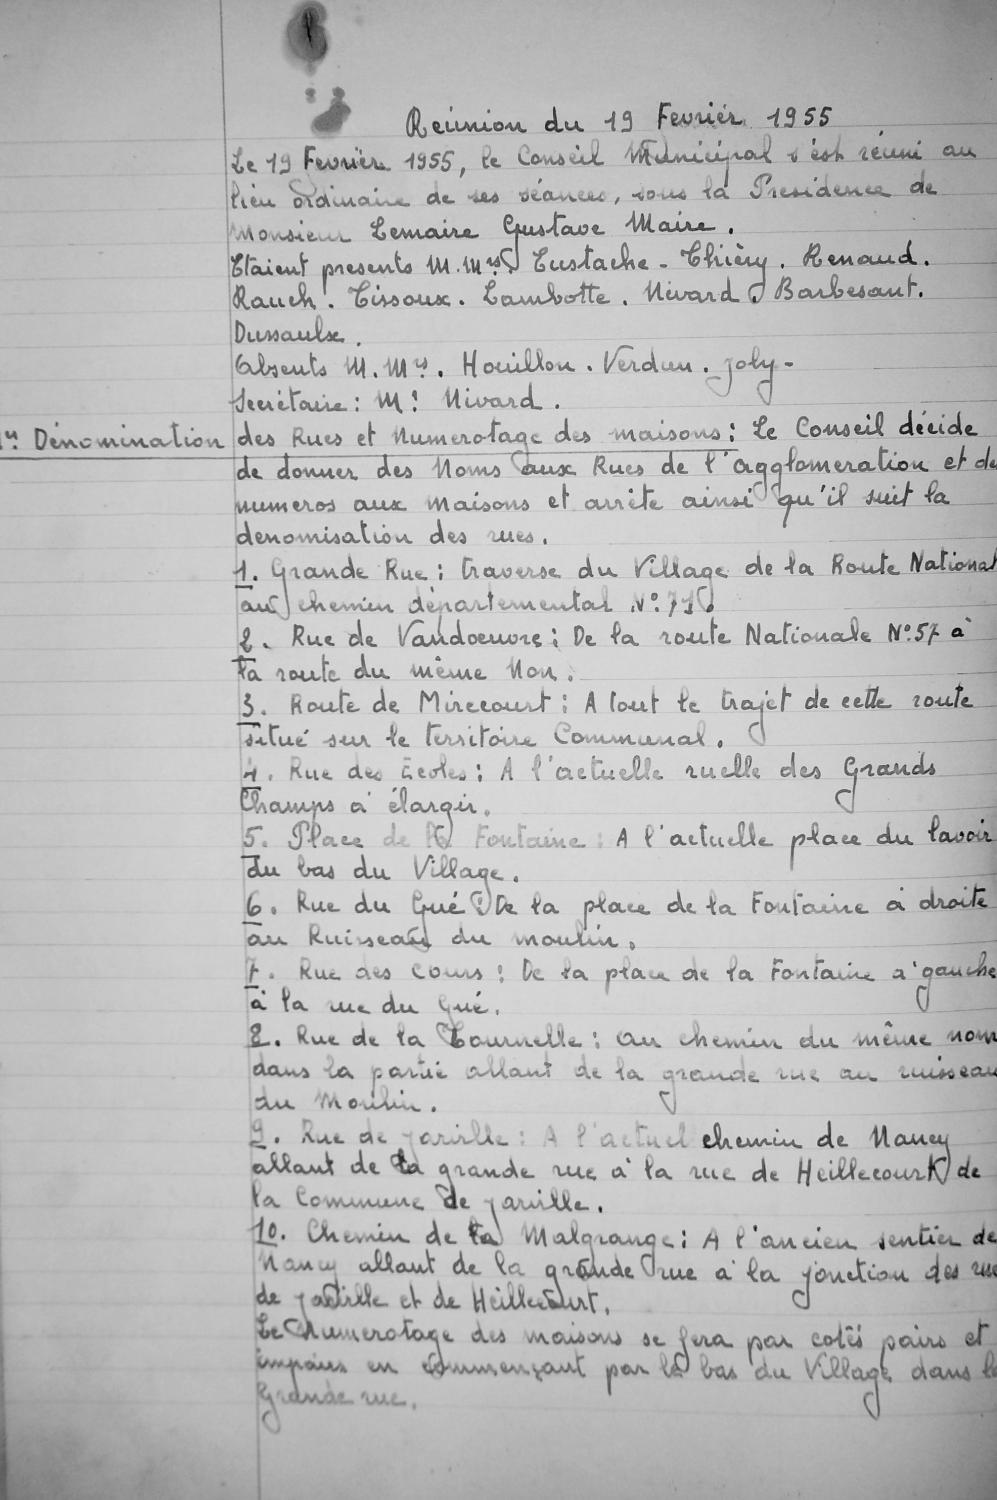 Reúnion du 19 Fevriér 1955
Le 19 Fevriër 1955, le Conseil Municipal s'est réuni au
lieu ordinaire de ses séances, sous la Presidence de
Monsieur Lemaire Gustave Maire.
Etaient presents M.Mrs. Eustache - Thièry. Renaud.
Rauch. Tissoux. Lambotte. Nivard. Barbesant.
Dussaulx.
Absents M.Mrs. Houillon. Verdun. Joly -
Secrétaire: Mr Nivard.
1er Dénomination des Rues et Numerotage des maisons: Le Conseil décide
de donner des Noms aux Rues de l'agglomeration et de
numeros aux maisons et arrête ainsi qu'il suit la
denomisation des rues.
1. Grande Rue: traverse du Village de la Route National
au chemin départemental N° 71
2. Rue de Vandoeuvre: De la route Nationale N°.57 à
la route du même Non.
3. Route de Mirecourt: A tout le trajet de cette route
situé sur le territoire Communal.
4. Rue des Ecoles: A l'actuelle ruelle des Grands
Champs à élargir.
5. Place de la Fontaine: A l'actuelle place du lavoir
du bas du Village.
6. Rue du Gué: De la place de la Fontaine à droite
au Ruisseau du moulin.
7. Rue des Cours: De la place de la Fontaine à gauche
à la rue du Gué.
8. Rue de la Tournelle: au chemin du même nom
dans la partie allant de la grande rue au ruisseau
du Moulin.
9. Rue de Jarville: A l'actuel chemin de Nancy
allant de la grande rue à la rue de Heillecourt de
la Commune de Jarville.
10. Chemin de la Malgrange: A l'ancien sentier de
Nancy allant de la grande rue à la jonction des rue
de Jarville et de Heillecourt.
Le Numerotage des maisons se fera par cotés pairs et
impairs en commençant par le bas du Village dans la
Grande rue.